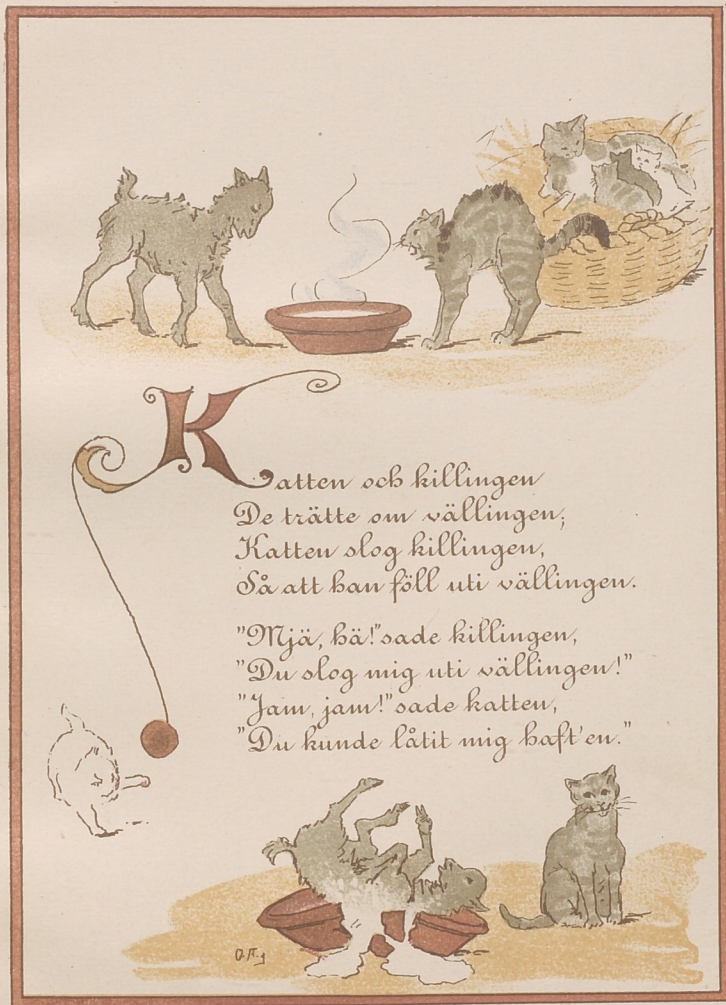 Katten och killingen
De trätte om vällingen;
Katten slog killingen,
Så att han föll uti vällingen.
"Mjä, hä!" sade killingen,
"Du slog mig uti vällingen!"
"Jam, jam!" sade katten,
"Du kunde låtit mig haft'en."